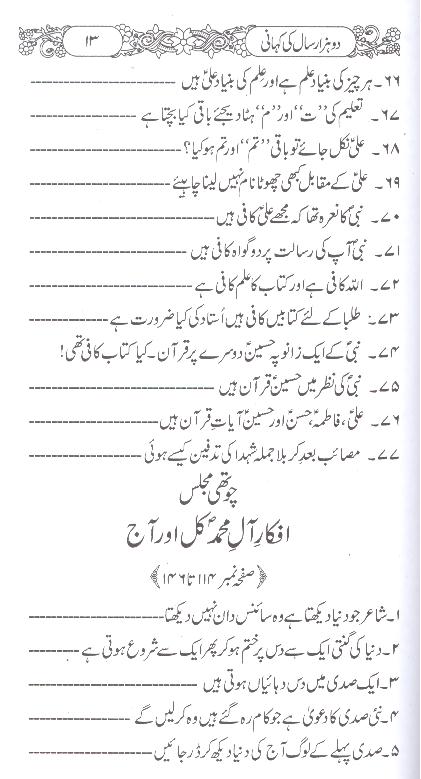 دو ہزار سال کی کہانی
۱۳
۶۶۔ ہر چیز کی بنیاد علم ہے اور علم کی بنیاد علیؑ ہیں ------------------
۶۷۔ تعلیم کی ”ت“ اور ”م“ ہٹا دیجئے باقی کیا بچتا ہے ------------------
۶۸۔ علیؑ نکل جائے تو باقی ”تم“ اور تم ہو کیا؟ ------------------
۶۹۔ علیؑ کے مقابل کبھی چھوٹا نام نہیں لینا چاہیئے ------------------
۷۰۔ نبیؐ کا نعرہ تھا کہ مجھے علیؑ کافی ہیں ------------------
۷۱۔ نبیؐ آپ کی رسالت پر دو گواہ کافی ہیں ------------------
۷۲۔ اللہ کافی ہے اور کتاب کا علم کافی ہے ------------------
۷۳۔ طلبا کے لئے کتابیں کافی ہیں اُستاد کی کیا ضرورت ہے ------------------
۷۴۔ نبیؐ کے ایک زانو پہ حسینؑ دوسرے پر قرآن۔ کیا کتاب کافی تھی!
۷۵۔ نبیؐ کی نظر میں حسینؑ قرآن ہیں ------------------
۷۶۔ علیؑ، فاطمہؑ، حسنؑ اور حسینؑ آیاتِ قرآن ہیں ------------------
۷۷۔ مصائب بعدِ کربلا جملہ شہدا کی تدفین کیسے ہوئی ------------------
چوتھی مجلس
افکارِ آلِ محمدؐ کل اور آج
﴿صفحہ نمبر ۱۱۴ تا ۱۴۶﴾
۱۔ شاعر جو دنیا دیکھتا ہے وہ سائنس دان نہیں دیکھتا ------------------
۲۔ دنیا کی گنتی ایک سے دس پر ختم ہو کر پھر ایک سے شروع ہوتی ہے ---------
۳۔ ایک صدی میں دس دہائیاں ہوتی ہیں ------------------
۴۔ نئی صدی کا دعویٰ ہے جو کام رہ گئے ہیں وہ کر لیں گے ------------------
۵۔ صدی پہلے کے لوگ آج کی دنیا دیکھ کر ڈر جائیں ------------------